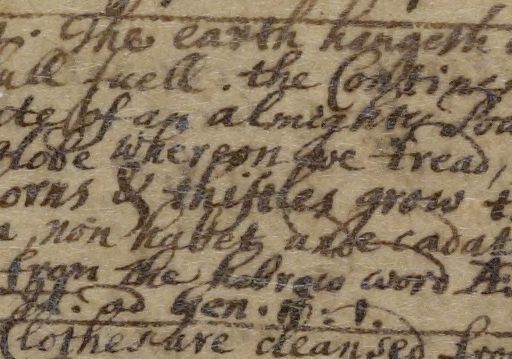 The earth hangeth
full fuell. the Contin
ote of an almighty
globe whereon we tread,
orns & thistles grow
non habet unde cadat
from the hebrew word
Gen.
Clothes are cleansed